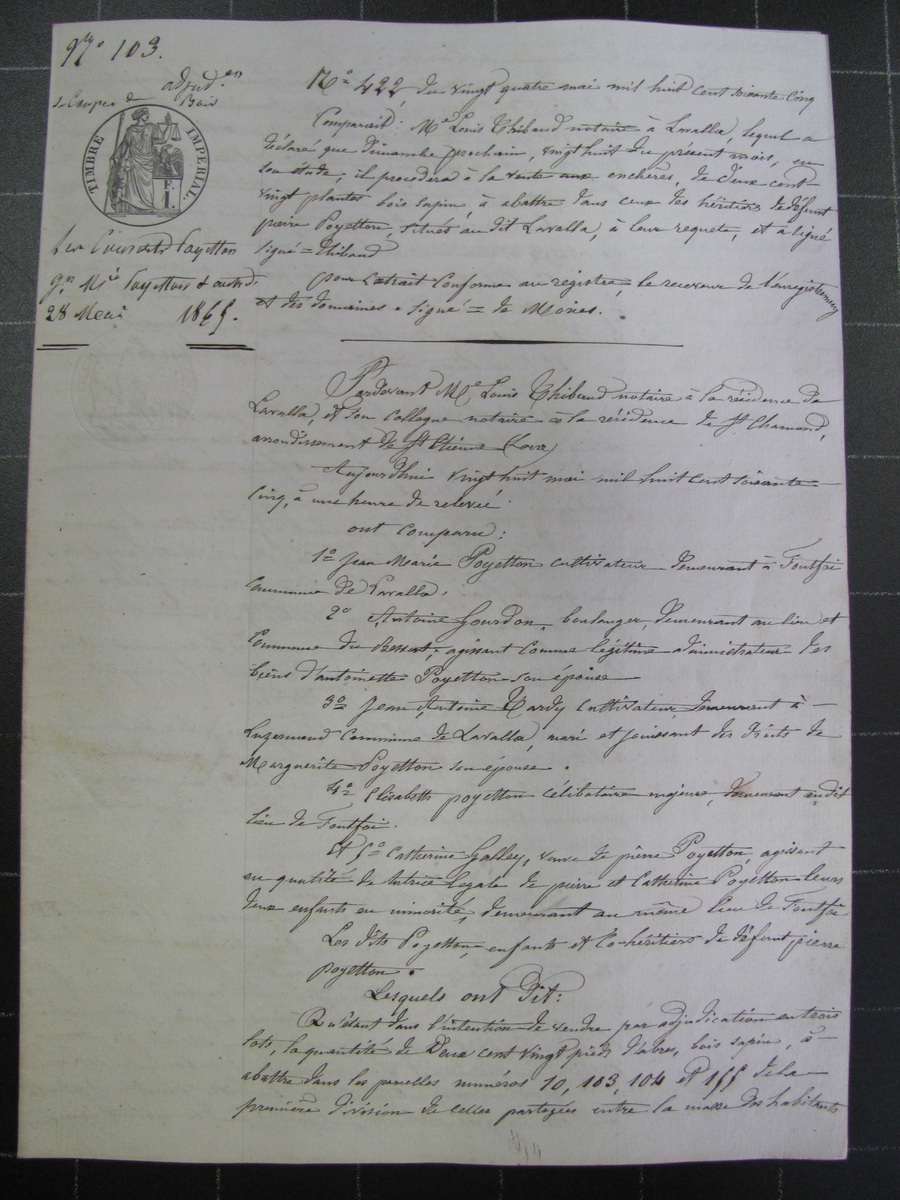 Nº 103.
adjud.on
de Coupes de Bois
TIMBRE IMPERIAL.
F. 1.
Les Consorts Poyetton
Jn Mie Poyetton & autres
28 Mai 1865.
Nº 422 du vingt quatre mai mil huit cent soixante cinq
Comparait: Me Louis Thibaud notaire à Lavalla, lequel a
déclaré que dimanche prochain, vingt huit du présent mois, en
son étude, il procédera à la vente aux enchères, de deux cent
vingt plantes bois sapin, à abattre dans ceux des héritiers de défunt
pierre Poyetton, situés au dit Lavalla, à leur requete, et a signé
signé = Thibaud
pour extrait conforme au registre, le receveur de l'enregistrement
et des domaines. signé = de Moires.
Pardevant Me Louis Thibaud notaire à la résidence de
Lavalla, et son collegue notaire à la résidence de St Chamond,
arrondissement de St Etienne (Loire)
Aujourdhui vingt huit mai mil huit cent soixante
cinq, à une heure de relevée
ont comparu:
1º Jean Marie Poyetton cultivateur demeurant à Fontfoi
Commune de Lavalla.
2º Antoine Gourdon, boulanger, demeurant au lieu et
Commune du Bessat, agissant comme légitime administrateur des
biens d'antoinette Poyetton son épouse
3º Jean Antoine Tardy cultivateur demeurant à
Luzernaud Commune de Lavalla, mari et jouissant des droits de
Marguerite Poyetton son épouse.
4º Elisabeth poyetton célibataire majeure, demeurant audit
lieu de Fontfoi.
Et 5º Catherine Galley, veuve de pierre Poyetton, agissant
en qualité de tutrice légale de pierre et Catherine Poyetton leurs
deux enfants en minorité, demeurant au même lieu de Fontfoi
Les dits Poyetton, enfants et Co-héritiers de défunt pierre
poyetton.
Lesquels ont dit:
Qu'étant dans l'intention de vendre par adjudication en trois
lots, la quantité de Deux cent vingt pieds d'abres, bois sapin, à
abattre dans les parcelles numéros 10, 103, 104 et 155 de la
première division de celles partagées entre la masse des habitants